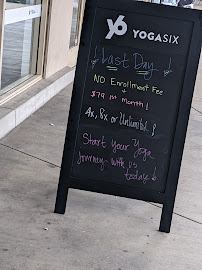 yo YOGASIX
! Last Day !
NO Enrollment Fee
+
$79 1st Month!
4x, 8x or Unlimited!
Start your Yoga
Journey with us
today!